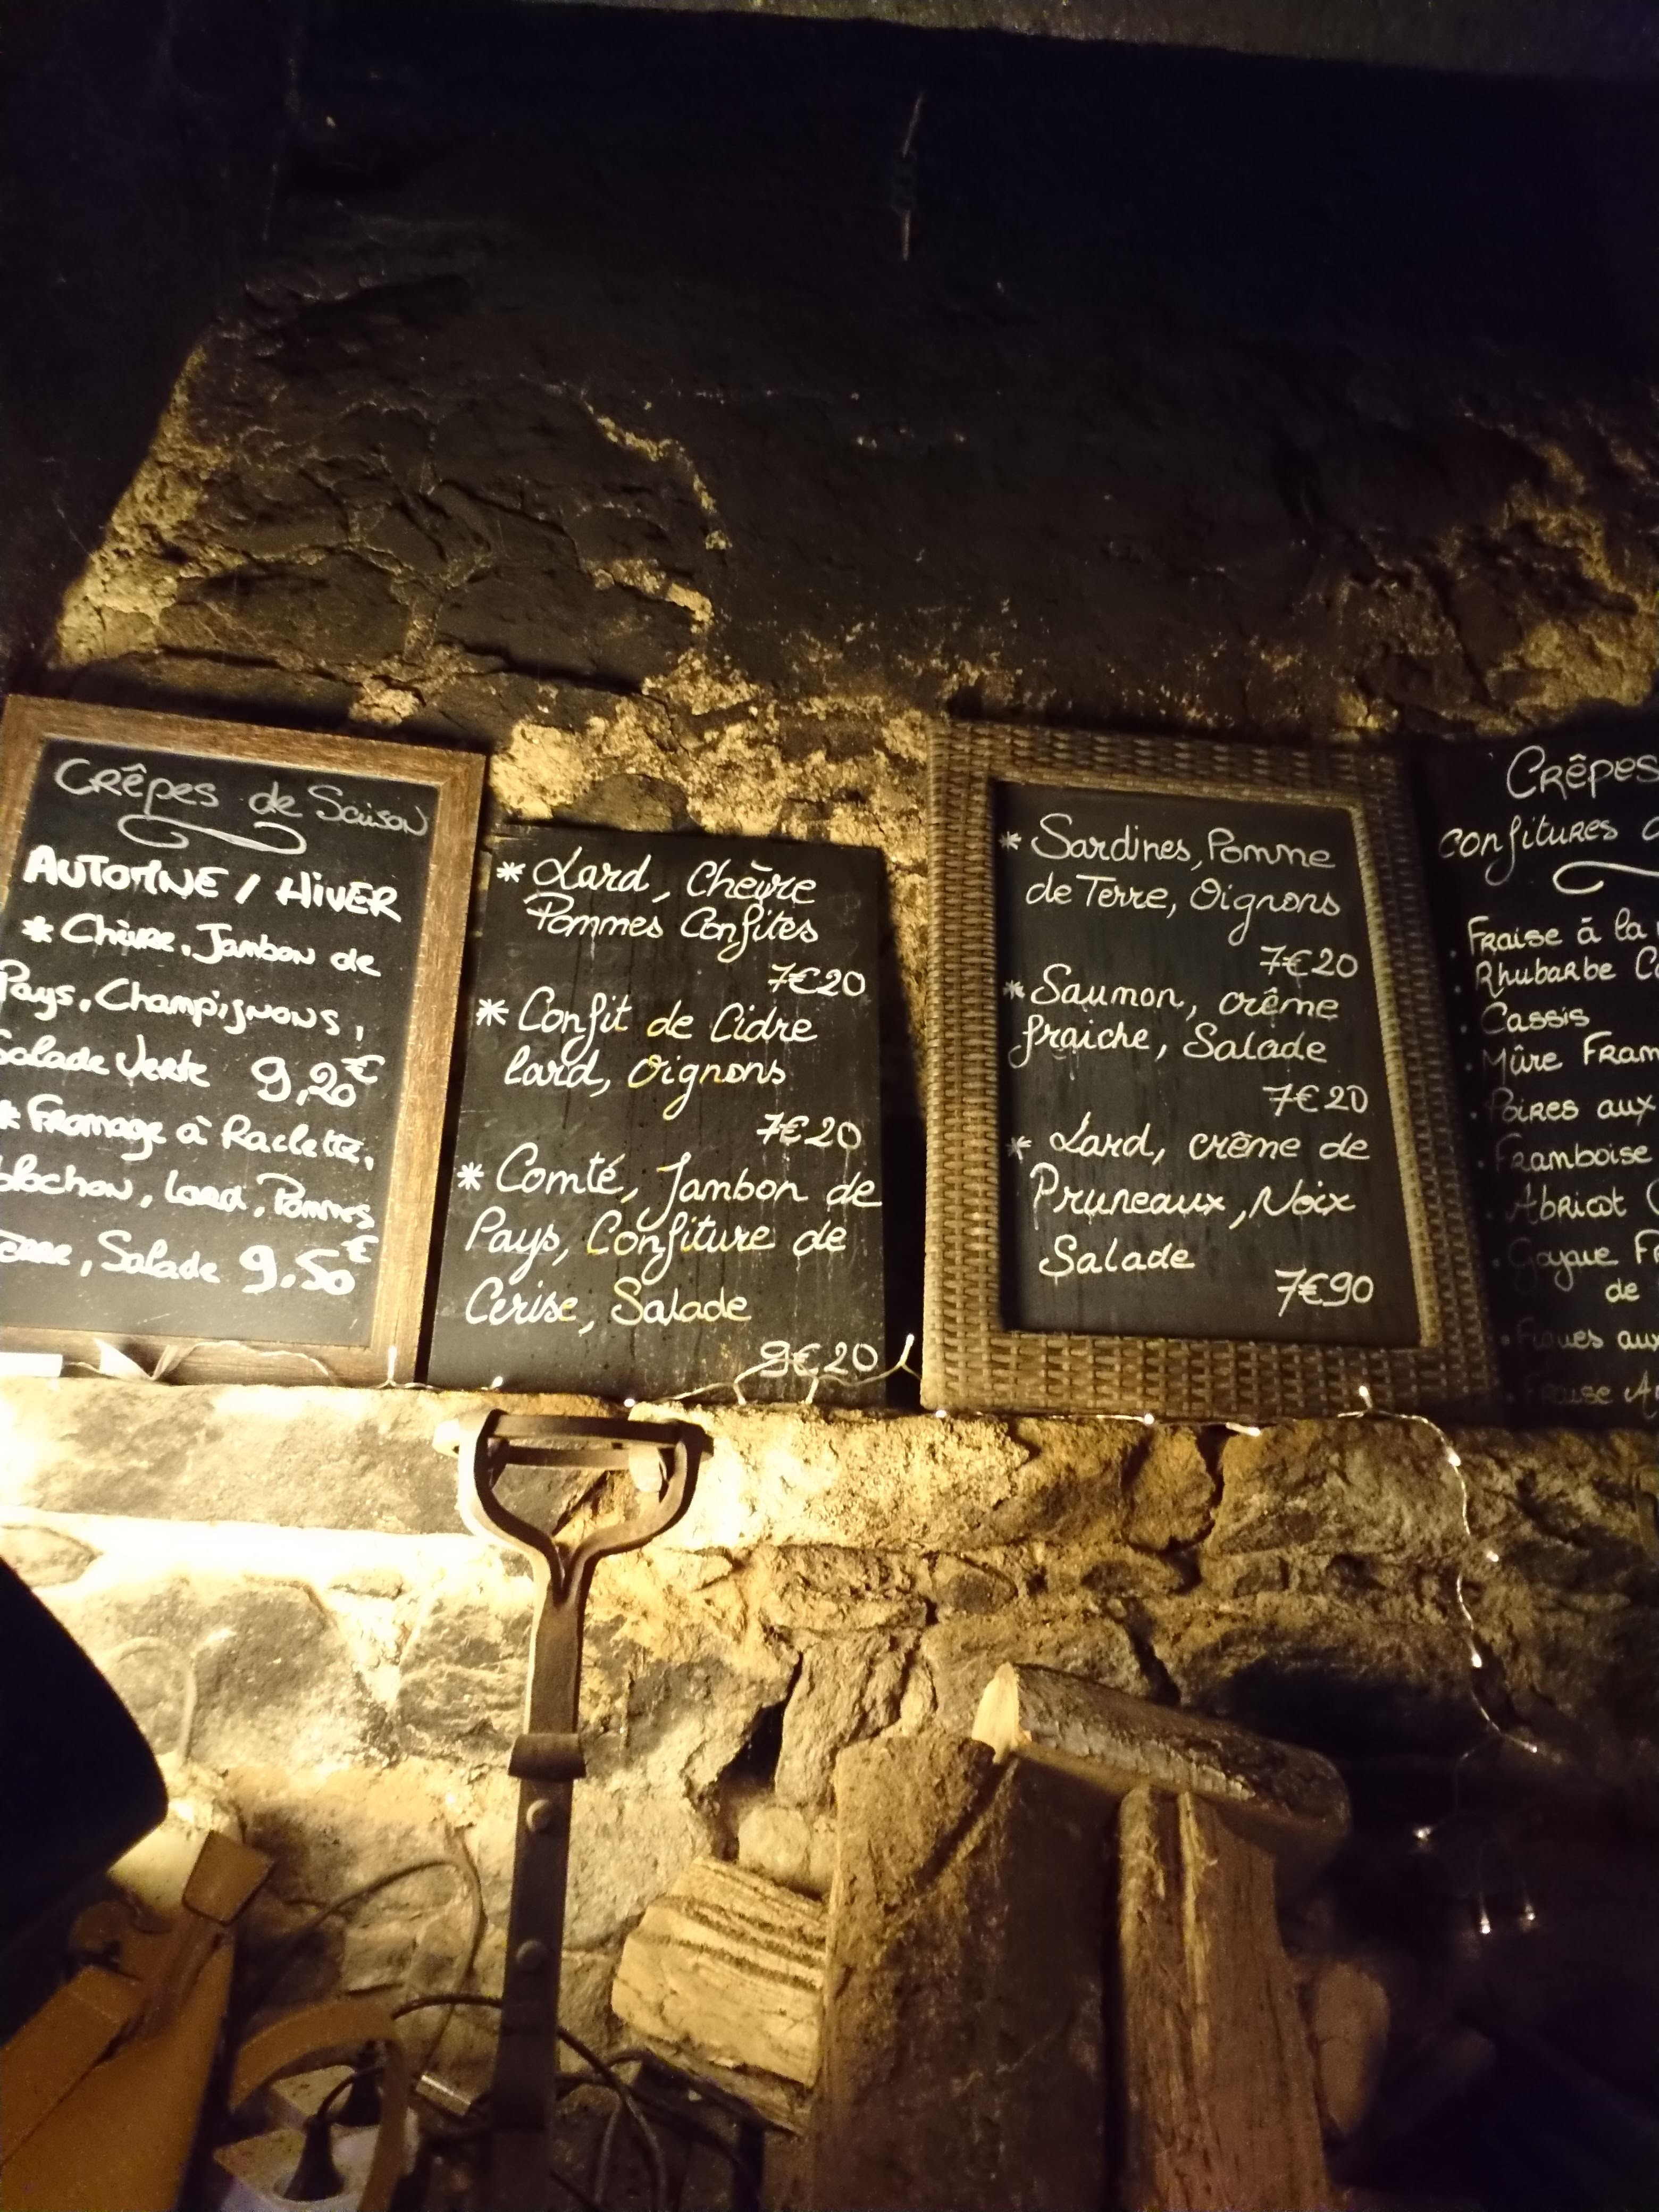 CRêpes de Saison
AUTOMNE / HIVER
* Chèvre, Jambon de
Pays, Champignons,
Salade Verte 9,20€
* Fromage à Raclette,
Lard, Pommes
Salade 9.50€
* Lard, Chèvre
Pommes Confites
7€20
* Confit de Cidre
lard, Oignons
7€20
* Comté, Jambon de
Pays, Confiture de
Cerise, Salade
9€20
* Sardines, Pomme
de Terre, Oignons
7€20
* Saumon, crême
fraiche, Salade
7€20
* Lard, crême de
Pruneaux, Noix
Salade
7€90
CRêpes
confitures
. FRaise à la
. Rhubarbe
. Cassis
. Mûre
. Poires aux
. Framboise
. Abricot
. Goyave
de
. Figues aux
. Fraise